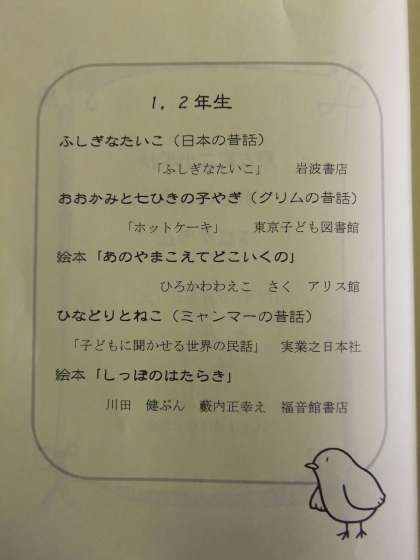 1，2年生
ふしぎなたいこ（日本の昔話）
「ふしぎなたいこ」　岩波書店
おおかみと七ひきの子やぎ（グリムの昔話）
「ホットケーキ」　東京子ども図書館
絵本「あのやまこえてどこいくの」
ひろかわさえこ　さく　アリス館
ひなどりとねこ（ミャンマーの昔話）
「子どもに聞かせる世界の民話」　実業之日本社
絵本「しっぽのはたらき」
川田　健ぶん　薮内正幸え　福音館書店